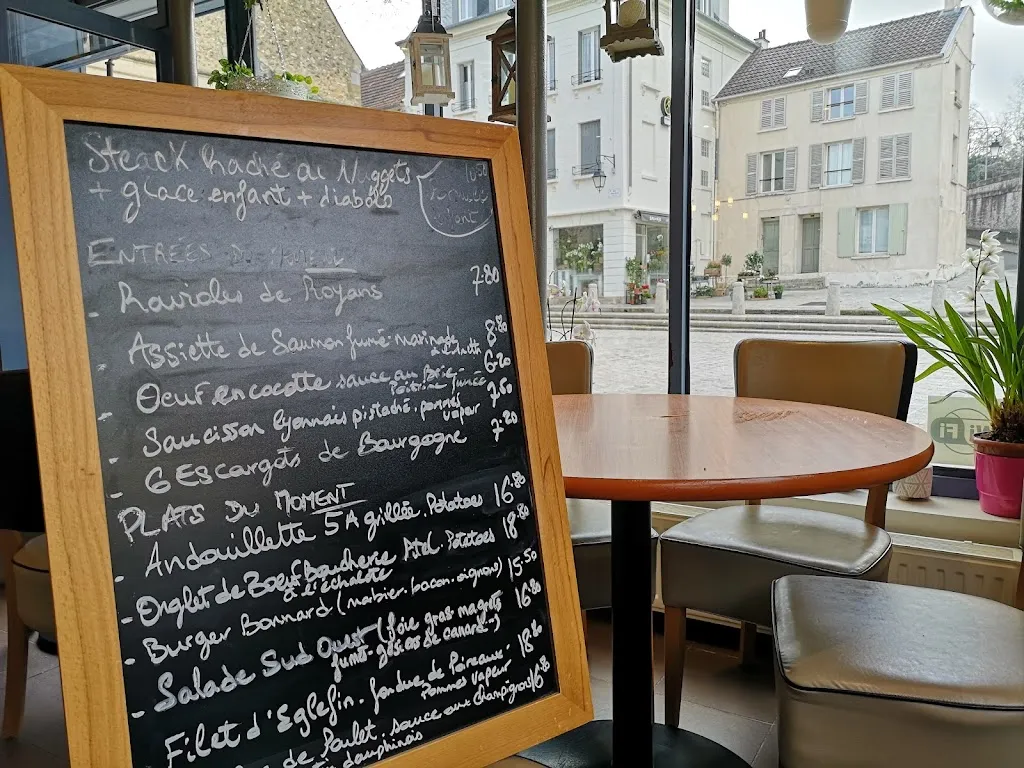 Steack haché ou Nuggets
+ glace enfant + diabolo
10.50
ENTRÉES DU
- Ravioles de Royans 7.80
- Assiette de Saumon fumé marinade 8.80
à l'aneth
- Oeuf en cocotte sauce au Brie 6.20
- Poitrine fumée
- Saucisson lyonnais pistaché. pommes 7.50
vapeur
- 6 Escargots de Bourgogne 7.20
PLATS DU MOMENT
- Andouillette 5A grillée. Potatoes 16.80
- Onglet de Boeuf Boucherie Potatoes 18.80
à l'échalote
- Burger Bonnard (bacon. oignons) 15.50
- Salade Sud Ouest (foie gras magrets 16.80
fumé. gésiers de canard.)
- Filet d'Eglefin. fondue de Poireaux. 18.80
Pommes vapeur
de Poulet. sauce aux champignons 16.80
dauphinois
WI FI